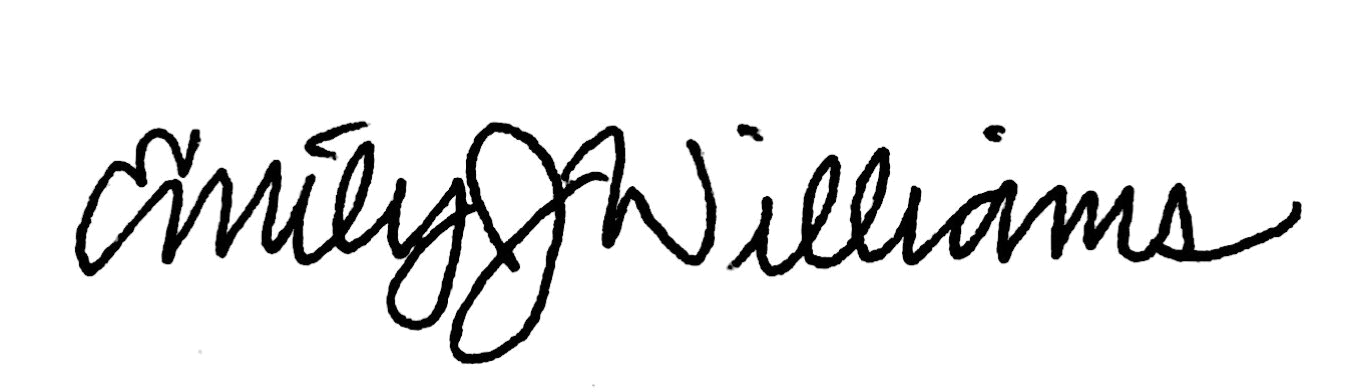 Emily J Williams